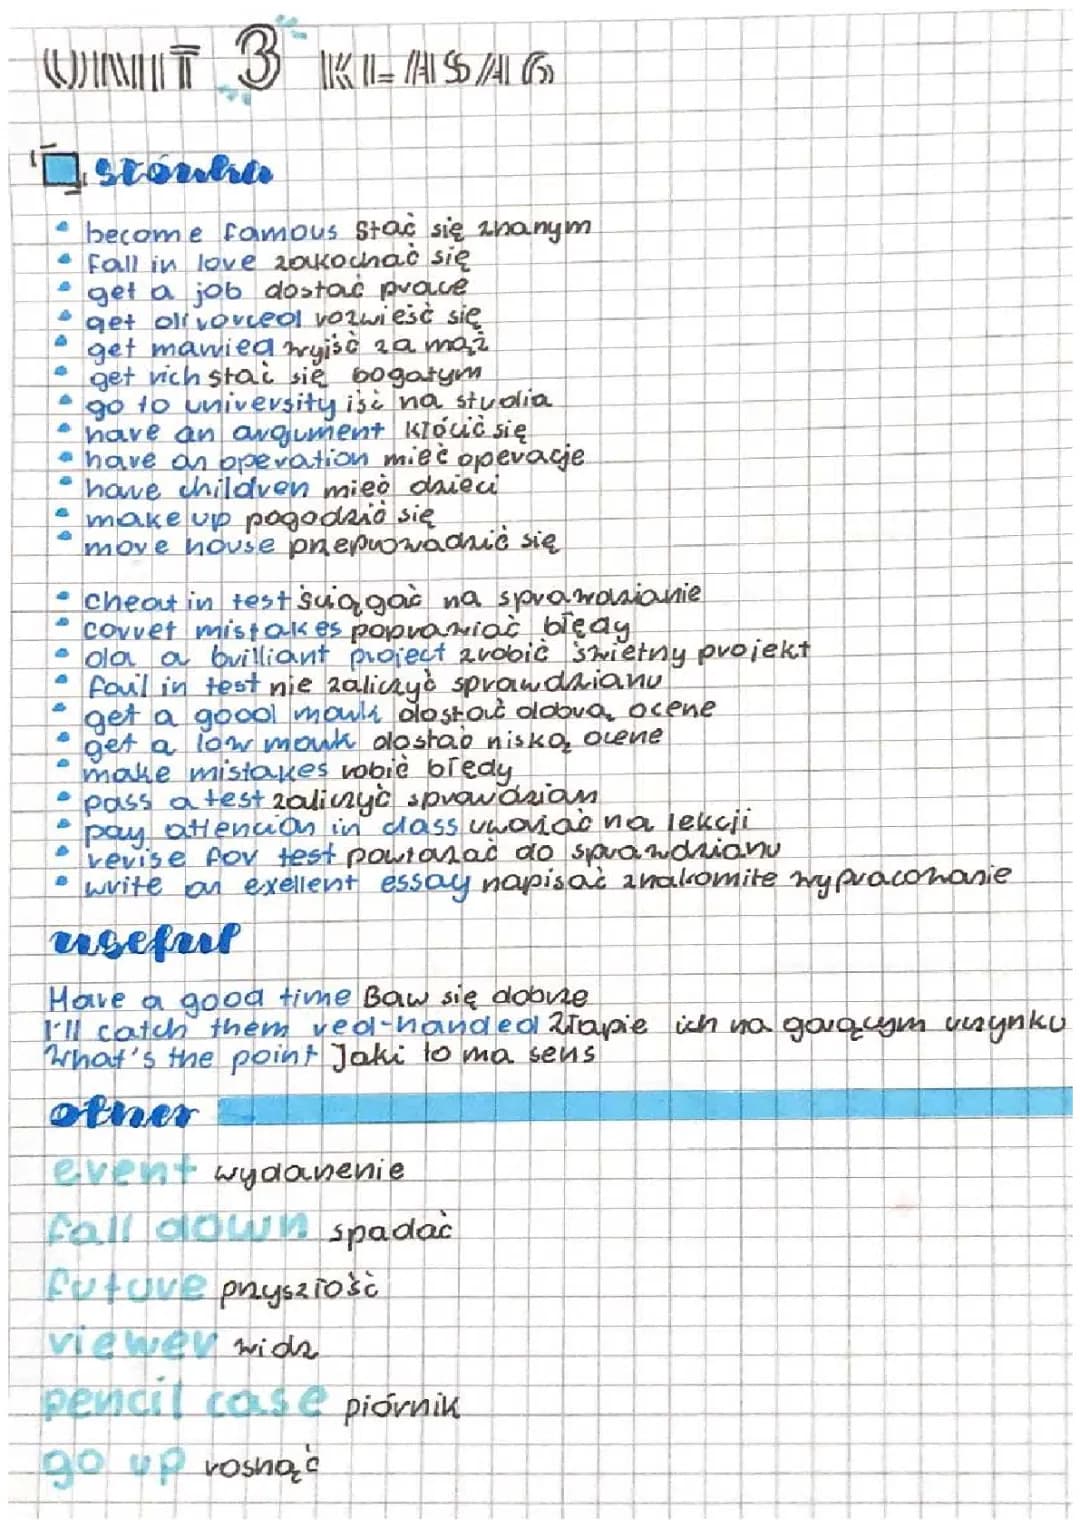 UNIT 3 KLASA 6
słówka
• become famous stać się znanym
• fall in love zakochać się
• get a job dostać prace
• get divorced rozwieść się
• get married wyjść za mąż
• get rich stać się bogatym
• go to university iść na studia
• have an argument kłócić się
• have an operation mieć operacje
• have children mieć dzieci
• make up pogodzić się
• move house przeprowadzić się
• cheat in test ściągać na sprawdzianie
• corret mistakes poprawiać błędy
• do a brilliant project zrobić świetny projekt
• fail in test nie zaliczyć sprawdzianu
• get a good mark dostać dobrą ocene
• get a low mark dostać niską ocene
• make mistakes robić błędy
• pass a test zaliczyć sprawdzian
• pay attencion in class uważać na lekcji
• revise for test powtarzać do sprawdzianu
• write an exellent essay napisać znakomite wypracowanie
useful
Have a good time Baw się dobrze
I'll catch them red-handed Złapie ich na gorącym uczynku
What's the point Jaki to ma sens
other
event wydarzenie
fall down spadać
future przyszłość
viewer widz
pencil case piórnik
go up rosnąć